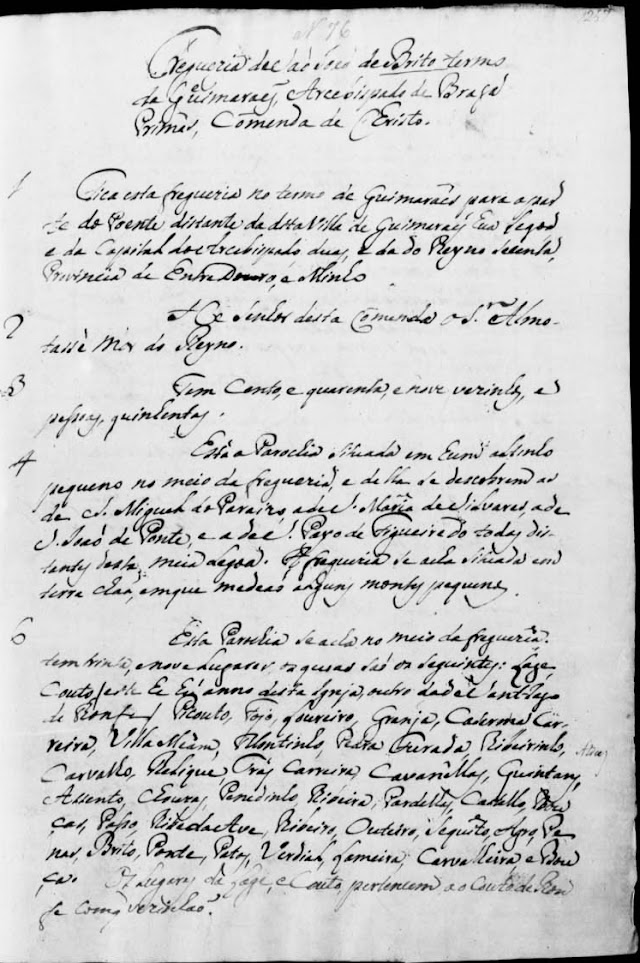 N 76
Fregueria de São Joaõ de Brito termo
da Guimaraes, Arcebispado de Braga
Primás, Comenda de Christo.
1 Fica esta fregueria no termo de Guimaraẽs para a par
te do Poente distante da ditta Villa de Guimaraẽs hua legoa
e da Capital do Arcebispado duas, e da do Reyno secenta,
Provincia de Entre Douro, e Minho
2 He Senhor desta Comenda o S.r Almo-
tassè Mor do Reyno.
3 Tem Cento, e quarenta, e nove vezinhos, e
pessoas, quinhentas.
4 Està a Parochia situada em hum altinho
pequeno no meio da fregueria, e della se descobrem as
de S. Miguel do Paraizo, a de S. Maria de Silvares, a de
S. Joaõ de Ponte, e a de S. Payo de Figueiredo todas dis-
tentes desta meia legoa. fregueria se acha situada em
terra chaã, em que medeaõ alguns montes pequenos.
6 Esta Parochia se acha no meio da fregueria.
tem trinta, e nove Lugares, os quais saõ os seguintes: Lage,
Couto, este he anno desta Igreja, outro
de Ronfe, Picouto, Fojo, Loureiro, Granja, Caserma Car-
reira, Villa Meam, Montinho, Pedra Furada, Ribeirinho,
Carvalho, Tras Carreira, Cavanellas, Quintans,
Assento, Choura, Penedinho, Ribeira, Pardelhas, Casello, Bou
ças, Passo, Riba da Ave, Ribeiro, Outeiro, Sequito, Agro, Pe
nas, Brito, Ponte, Patos, Verdial, Lameira, Carvalheira e Bou
ça. Os Lugares da Lage, e Couto pertencem ao Couto de Ron
fe como verinhaõ.